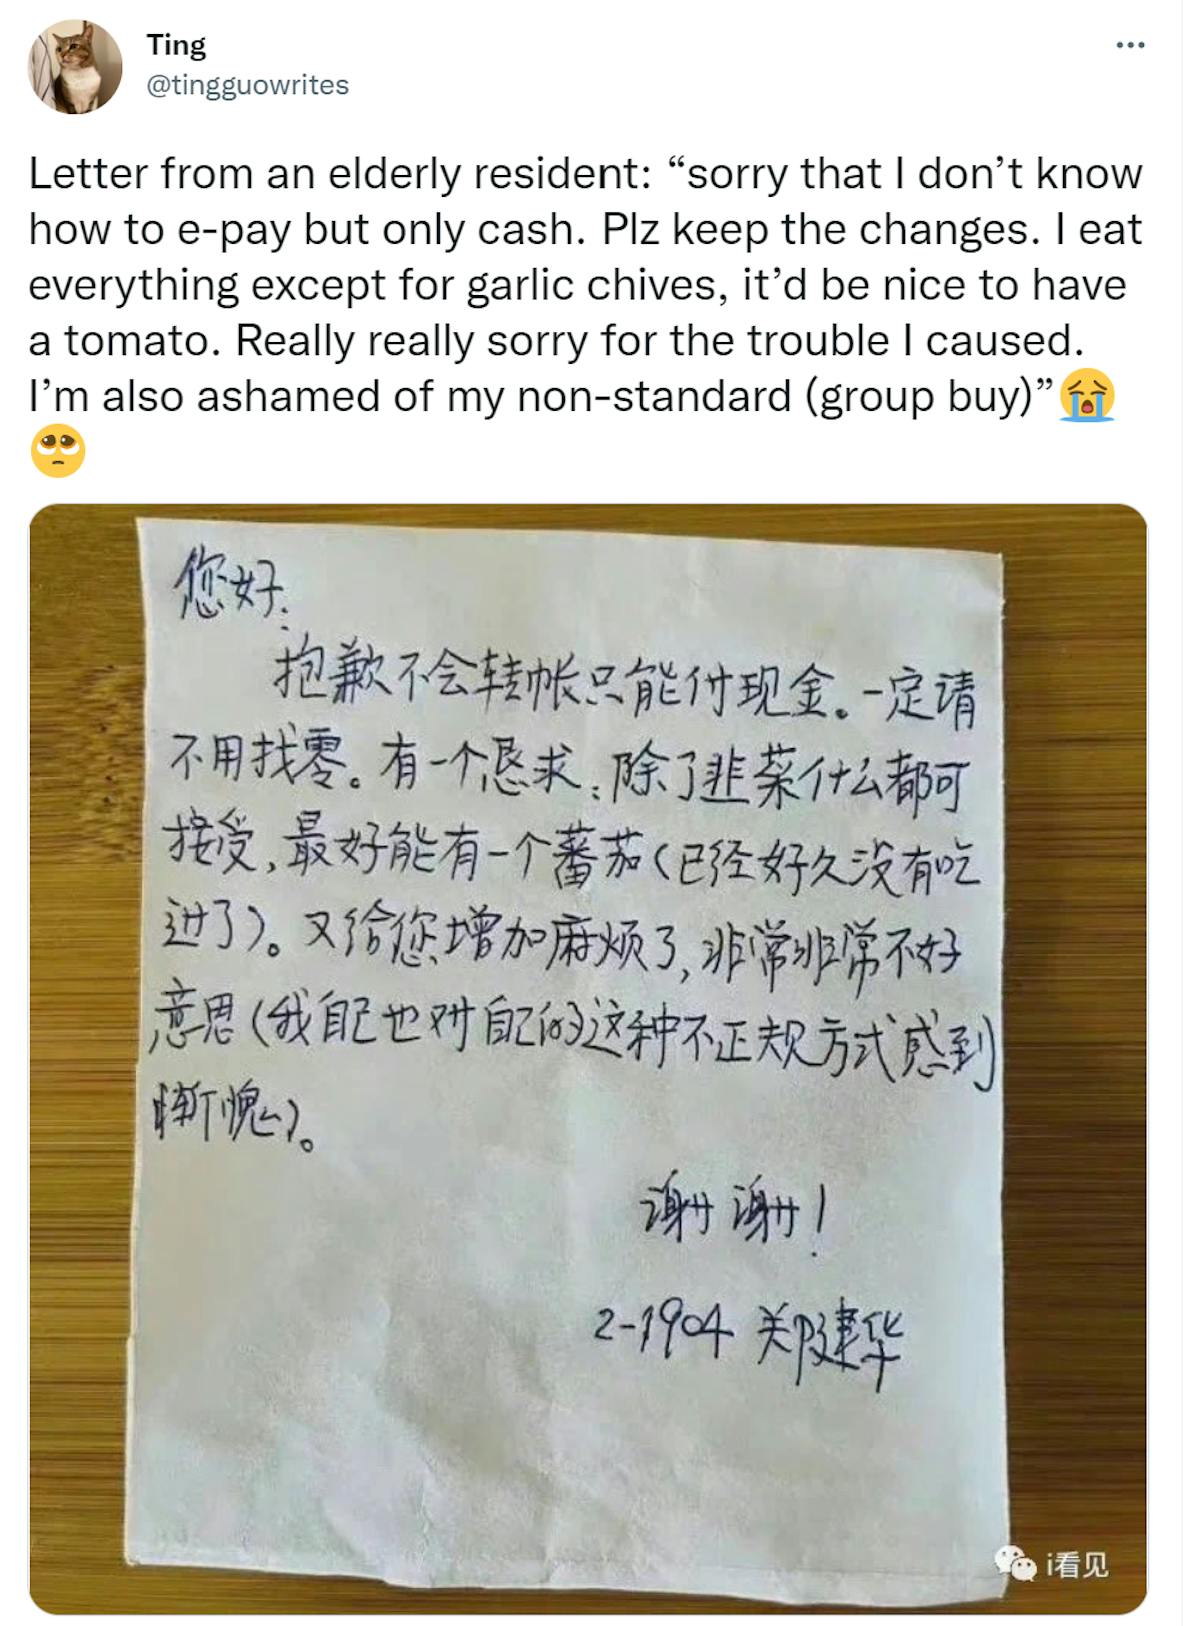 Ting
@tingguowrites
Letter from an elderly resident: “sorry that I don’t know
how to e-pay but only cash. Plz keep the changes. I eat
everything except for garlic chives, it’d be nice to have
a tomato. Really really sorry for the trouble I caused.
I’m also ashamed of my non-standard (group buy)”😭
🥺
您好:
抱歉不会转帐只能付现金。一定请
不用找零。有一个恳求:除了韭菜什么都可
接受,最好能有一个蕃茄(已经好久没有吃
过了)。又给您增加麻烦了,非常非常不好
意思(我自己也对自己的这种不正规方式感到
惭愧)。
谢谢!
2-1904 郑建华
i看见